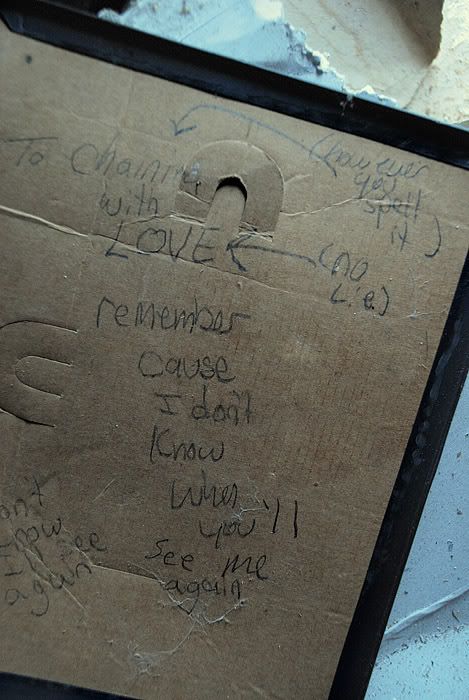 To
(however
you
spell
it)
with
LOVE
(no
Lie)
remember
cause
I don't
know
when
you'll
see me
again
on't
now
see
again